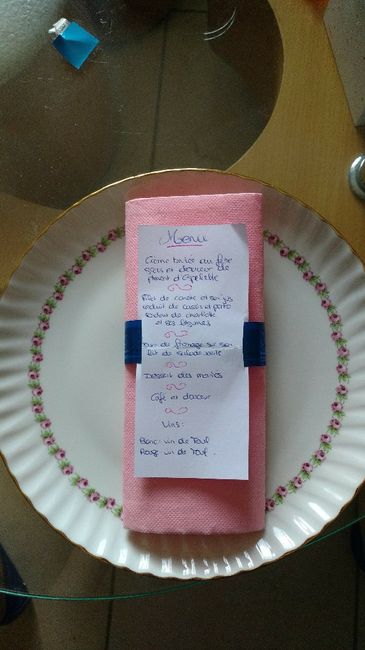 Menu
Crème brulée au foie
gras et douceur de
piment d'Espelette
Filet de canard et son jus
réduit de cassis et porto
fondue de
et ses légumes
de fromage sur son
lit de salade verte
Dessert des mariés
Café et douceur
Vins:
Blanc: vin de Tout
Rouge vin de Tout